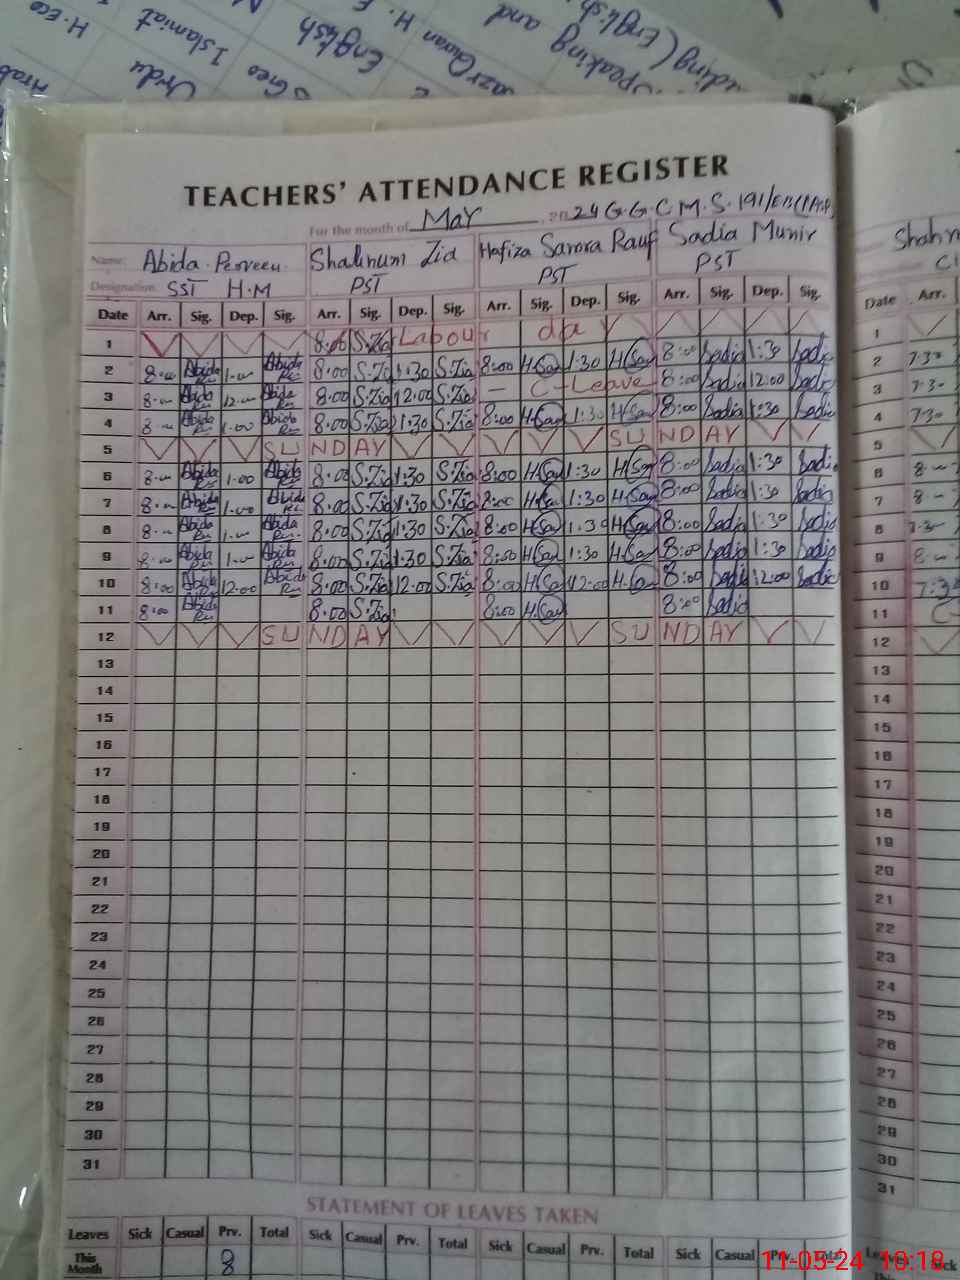 H. Eco
Islamiat
English
Urdu
Geo
Speaking and
(English
Arab
TEACHERS' ATTENDANCE REGISTER
For the month of MaY 2024 G.G.C.M.S. 191/EB
Name: Abida Perveen Shahnum Zia Hafiza Samra Rauf Sadia Munir
Designation SST H.M PST PST PST
Date Arr. Sig. Dep. Sig. Arr. Sig. Dep. Sig. Arr. Sig. Dep. Sig. Arr. Sig. Dep. Sig. Date Arr.
1 8:00 S.Zia Labour day 1
2 8:00 Abida 1:00 Abida 8:00 S.Zia 1:30 S.Zia 8:00 H.Sam 1:30 H.Sam 8:00 Sadia 1:30 Sadia 2 7:30
3 8:00 Abida 12:00 Abida 8:00 S.Zia 12:00 S.Zia — C-Leave 8:00 Sadia 12:00 Sadia 3 7:30
4 8:00 Abida 1:00 Abida 8:00 S.Zia 1:30 S.Zia 8:00 H.Sam 1:30 H.Sam 8:00 Sadia 1:30 Sadia 4 7:30
5 SUNDAY SUNDAY 5
6 8:00 Abida 1:00 Abida 8:00 S.Zia 1:30 S.Zia 8:00 H.Sam 1:30 H.Sam 8:00 Sadia 1:30 Sadia 6 8:00
7 8:00 Abida 1:00 Abida 8:00 S.Zia 1:30 S.Zia 8:00 H.Sam 1:30 H.Sam 8:00 Sadia 1:30 Sadia 7 8:00
8 8:00 Abida 1:00 Abida 8:00 S.Zia 1:30 S.Zia 8:00 H.Sam 1:30 H.Sam 8:00 Sadia 1:30 Sadia 8 7:30
9 8:00 Abida 1:00 Abida 8:00 S.Zia 1:30 S.Zia 8:00 H.Sam 1:30 H.Sam 8:00 Sadia 1:30 Sadia 9 8:00
10 8:00 Abida 12:00 Abida 8:00 S.Zia 12:00 S.Zia 8:00 H.Sam 12:00 H.Sam 8:00 Sadia 12:00 Sadia 10 7:30
11 8:00 Abida 8:00 S.Zia 8:00 H.Sam 8:00 Sadia 11
12 SUNDAY SUNDAY 12
13 13
14 14
15 15
16 16
17 17
18 18
19 19
20 20
21 21
22 22
23 23
24 24
25 25
26 26
27 27
28 28
29 29
30 30
31 31
STATEMENT OF LEAVES TAKEN
Leaves Sick Casual Prv. Total Sick Casual Prv. Total Sick Casual Prv. Total Sick Casual Prv. Total
This Month 8
11-05-24 10:18